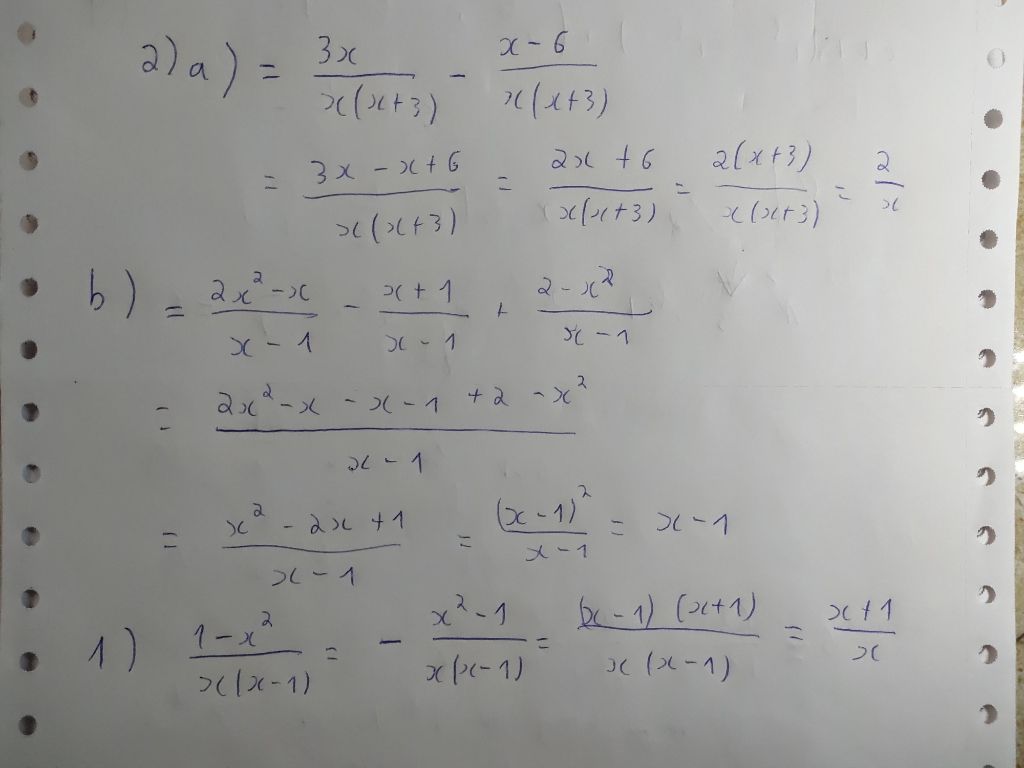 2) a) = \frac{3x}{x(x+3)} - \frac{x-6}{x(x+3)}
= \frac{3x - x + 6}{x(x+3)} = \frac{2x + 6}{x(x+3)} = \frac{2(x+3)}{x(x+3)} = \frac{2}{x}
b) = \frac{2x^2 - x}{x - 1} - \frac{x + 1}{x - 1} + \frac{2 - x^2}{x - 1}
= \frac{2x^2 - x - x - 1 + 2 - x^2}{x - 1}
= \frac{x^2 - 2x + 1}{x - 1} = \frac{(x-1)^2}{x-1} = x - 1
1) \frac{1 - x^2}{x(x-1)} = - \frac{x^2 - 1}{x(x-1)} = \frac{(x-1)(x+1)}{x(x-1)} = \frac{x+1}{x}